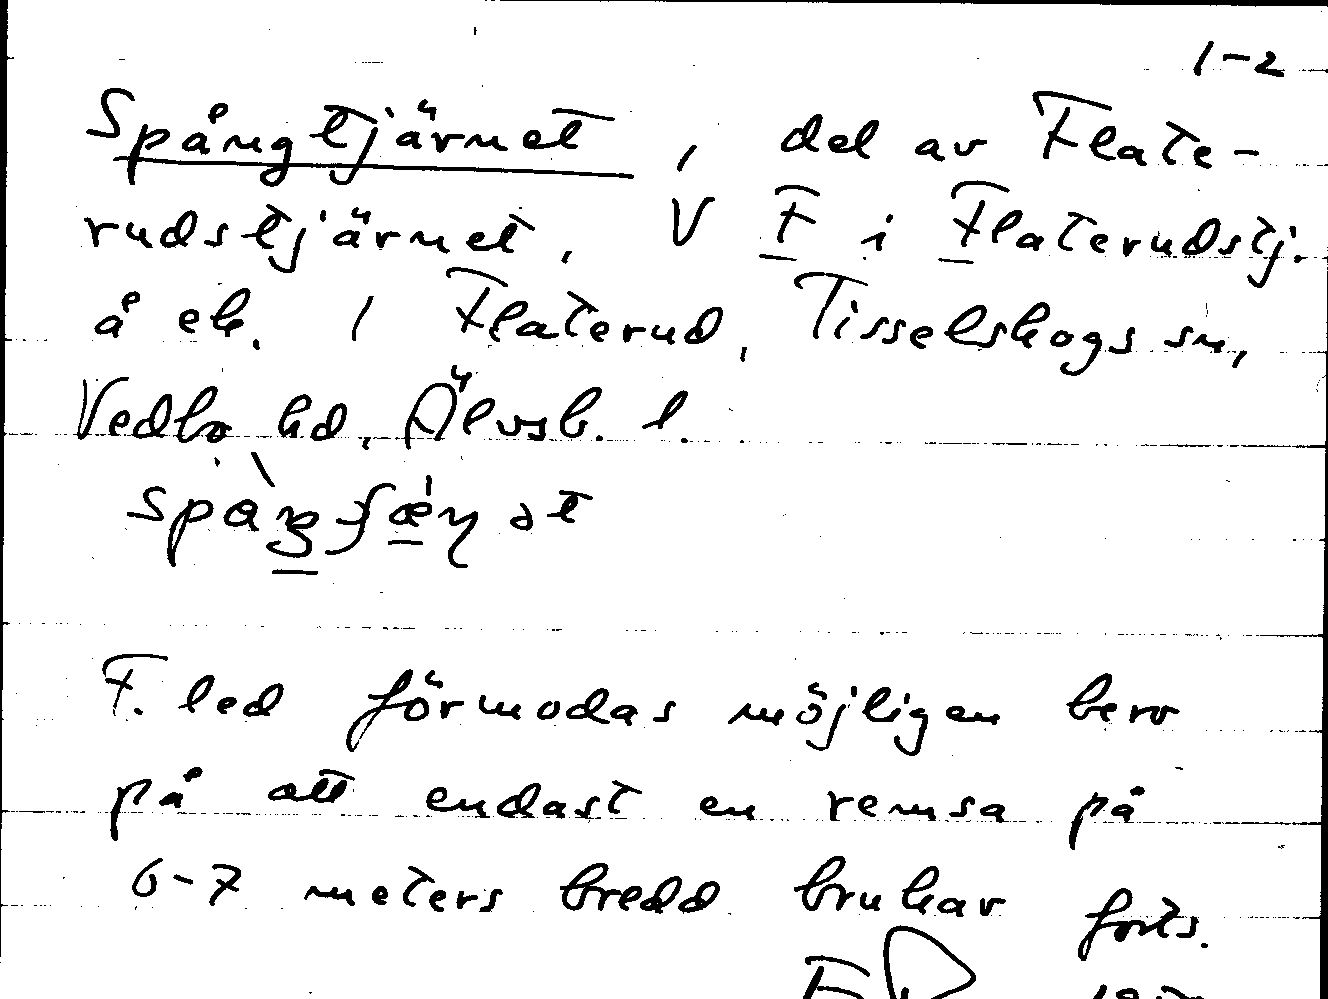 1-2
Spångtjärnet, del av Flate-
rudstjärnet, V F i Flaterudstj.
å ek. / Flaterud, Tisselskogs sn,
Vedbo hd, Älvsb. l.
F. led förmodas möjligen bero
på att endast en remsa på
6-7 meters bredd brukar forts.